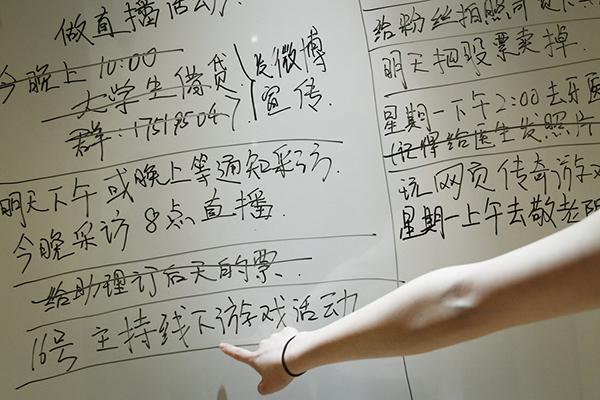 做直播活动.
今晚上 10:00
大学生借贷
群:175195047.
发微博
宣传.
明天下午或晚上等通知采访.
今晚采访8点直播.
给助理订后天的票.
16号主持线下游戏活动
给粉丝拍照
明天把股票卖掉.
星期一下午2:00去牙医
(记得给医生发照片
玩网页传奇游戏
星期一上午去敬老院